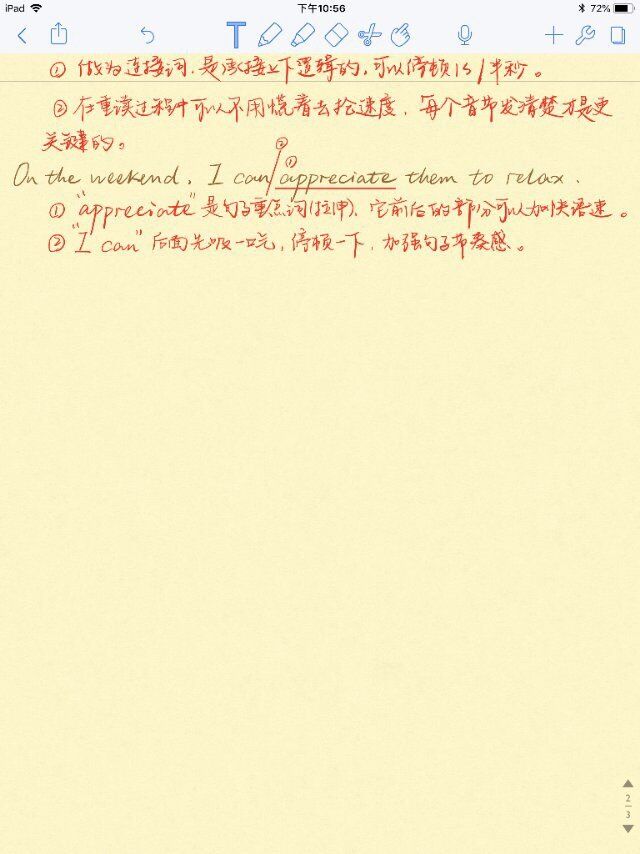 iPad 下午10:56 72%
T
① 做为连接词,是承接上下逻辑的,可以停顿1s/半秒。
② 在重读过程中可以不用慌着去抢速度,每个音节发清楚才是更
关键的。
②
On the weekend, I can / ① appreciate them to relax.
① "appreciate"是句子重点词(拉伸),它前后的部分可以加快语速。
② "I can"后面先吸一口气,停顿一下,加强句子节奏感。
2
3